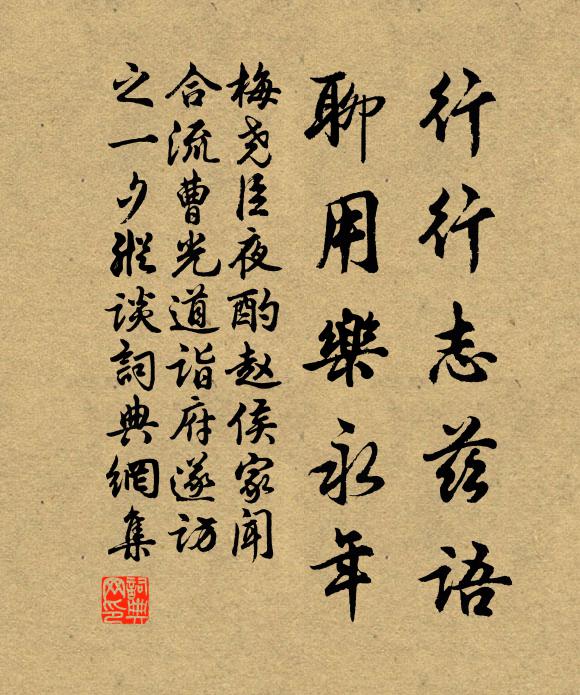 行行志茲語
聊用樂永年
梅尧臣夜酌赵侯家闻
合流曹光道诣府遂访
之一夕縱谈詞典網集
詞典网印